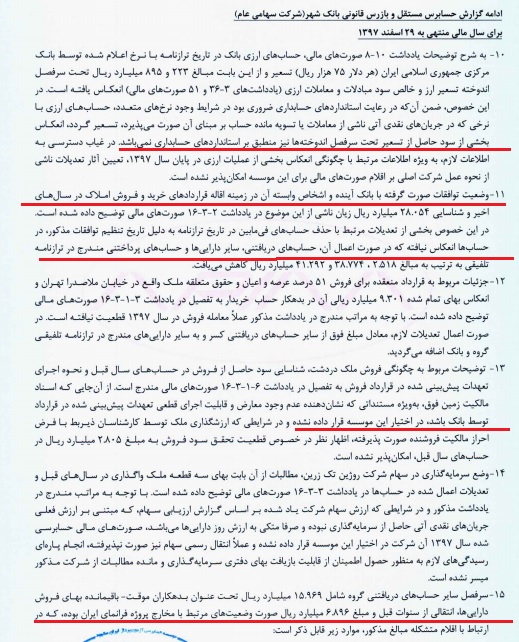 ادامه گزارش حسابرس مستقل و بازرس قانونی بانک شهر(شرکت سهامی عام)
برای سال مالی منتهی به ۲۹ اسفند ۱۳۹۷
۱۰- به شرح توضیحات یادداشت ۱۰-۸ صورت‌های مالی، حساب‌های ارزی بانک در تاریخ ترازنامه با نرخ اعلام شده توسط بانک
مرکزی جمهوری اسلامی ایران (هر دلار ۷۵ هزار ریال) تسعیر و از ایـن بابـت مبـالغ ۲۲۳ و ۸۹۵ میلیـارد ریـال تحـت سرفصل
اندوخته تسعیر ارز و خالص سود مبادلات و معاملات ارزی (یادداشت‌های ۳-۳۶ و ۵۱ صورت‌های مالی) انعکاس یافته اسـت. در
این خصوص، ضمن آن‌که در رعایت استانداردهای حسابداری ضروری بود در شرایط وجود نرخ‌های متعدد، حساب‌هـای ارزی بـا
نرخی که در جریان‌های نقدی آتی ناشی از معاملات یا تسویه مانده حساب بر مبنای آن صورت می‌پذیرد، تسـعیر گـردد، انعکـاس
بخشی از سود حاصل از تسعیر تحت سرفصل اندوخته‌ها نیز منطبق بر استانداردهای حسابداری نمی‌باشد. در غیاب دسترسی به
اطلاعات لازم، به ویژه اطلاعات مرتبط با چگونگی انعکاس بخشی از عملیات ارزی در پایان سال ۱۳۹۷، تعیین آثار تعدیلات ناشی
از نحوه عمل شرکت اصلی بر اقلام صورت‌های مالی برای این موسسه امکان‌پذیر نشده است.
۱۱- وضعیت توافقات صورت گرفته با بانک آینده و اشخاص وابسته آن در زمینه اقاله قراردادهای خرید و فـروش امـلاک در سـال‌هـای
اخیر و شناسایی ۲۸.۰۵۴ میلیارد ریال زیان ناشی از این موضوع در یادداشت ۲-۳-۱۶ صورت‌های مالی توضیح داده شـده اسـت.
در این خصوص بخشی از تعدیلات مرتبط با حذف حساب‌های فی‌مابین در تاریخ ترازنامه به دلیل تاریخ تنظیم توافقات مذکور، در
حساب‌ها انعکاس نیافته که در صورت اعمال آن، حساب‌های دریافتنی، سایر دارایی‌ها و حساب‌های پرداختنی منـدرج در ترازنامـه
تلفیقی به ترتیب به مبالغ ۲.۵۱۸، ۳۸.۷۷۴ و ۴۱.۲۹۲ میلیارد ریال کاهش می‌یافت.
۱۲- جزئیات مربوط به قرارداد منعقده برای فروش ۵۱ درصد عرصه و اعیان و حقوق متعلقه ملـک واقـع در خیابـان ملاصـدرا تهـران و
انعکاس بهای تمام شده ۹.۳۰۱ میلیارد ریالی آن در بدهکار حساب خریدار به تفصیل در یادداشت ۳-۱-۳-۱۶ صورت‌هـای مـالی
توضیح داده شده است. با توجه به مراتب مندرج در یادداشت مذکور عملاً معامله فروش در سال ۱۳۹۷ قطعیت نیافتـه اسـت. در
صورت اعمال تعدیلات لازم، معادل مبلغ فوق از سایر حساب‌های دریافتنی کسر و به سایر دارایی‌های مندرج در ترازنامـه تلفـیقـی
گروه و بانک اضافه می‌گردید.
۱۳- توضیحات مربوط به چگونگی فروش ملک دردشت، شناسایی سود حاصل از فـروش در حسـاب‌هـای سـال قبـل و نحـوه اجـرای
تعهدات پیش‌بینی شده در قرارداد فروش به تفصیل در یادداشت ۶-۱-۳-۱۶ صورت‌های مالی مندرج است. از آن‌جایی کـه اسـناد
مالکیت زمین فوق، به‌ویژه مستنداتی که نشان‌دهنده عدم وجود معارض و قابلیت اجرای قطعی تعهدات پیش‌بینی شده در قرارداد
توسط بانک باشد، در اختیار این موسسه قرار داده نشده و در شرایطی که ارزشگذاری ملک توسط کارشناسان ذیـربط بـا فـرض
احراز مالکیت فروشنده صورت پذیرفته، اظهار نظر در خصوص قطعیت تحقق سـود فـروش بـه مبلـغ ۲.۸۰۵ میلیـارد ریـال در
حساب‌های سال قبل، امکان‌پذیر نشده است.
۱۴- وضع سرمایه‌گذاری در سهام شرکت روژین تک زرین، مطالبات از آن بابت بهای سـه قطعـه ملـک واگـذاری در سـال‌هـای قبـل و
تعدیلات اعمال شده در حساب‌ها در یادداشت ۳-۳-۱۶ صورت‌های مالی توضیح داده شده است. بـا توجـه بـه مراتـب منـدرج در
یادداشت مذکور و در شرایطی که ارزش سهام شرکت یـاد شـده بـر اسـاس گـزارش ارزیـابی سـهام، کـه مبتنـی بـر ارزش فعلـی
جریان‌های نقدی آتی حاصل از سرمایه‌گذاری نبوده و صرفا متکی به ارزش روز دارایی‌ها می‌باشـد، صورت‌هـای مـالی حسابرسـی
شده سال ۱۳۹۷ آن شرکت در اختیار این موسسه قرار داده نشده و عملاً انتقال رسمی سهام نیز صورت نپذیرفتـه، انجـام پـاره‌ای
رسیدگی‌های لازم به منظور حصول اطمینان از قابلیت بازیافت بهای دفتری سـرمایه‌گـذاری و مانـده مطالبـات از شـرکت مـذکور
میسر نشده است.
۱۵- سرفصل سایر حساب‌های دریافتنی گروه شامل ۱۵.۹۶۹ میلیـارد ریـال تحـت عنـوان بـدهکاران موقـت- باقیمانـده بهـای فـروش
دارایی‌ها، انتقالی از سنوات قبل و مبلغ ۶.۸۹۶ میلیارد ریال صورت وضعیت‌های مرتبط با مخارج پروژه فرانمای ایران بوده، کـه در
ارتباط با اقلام متشکله مبالغ مذکور، موارد زیر قابل ذکر است: